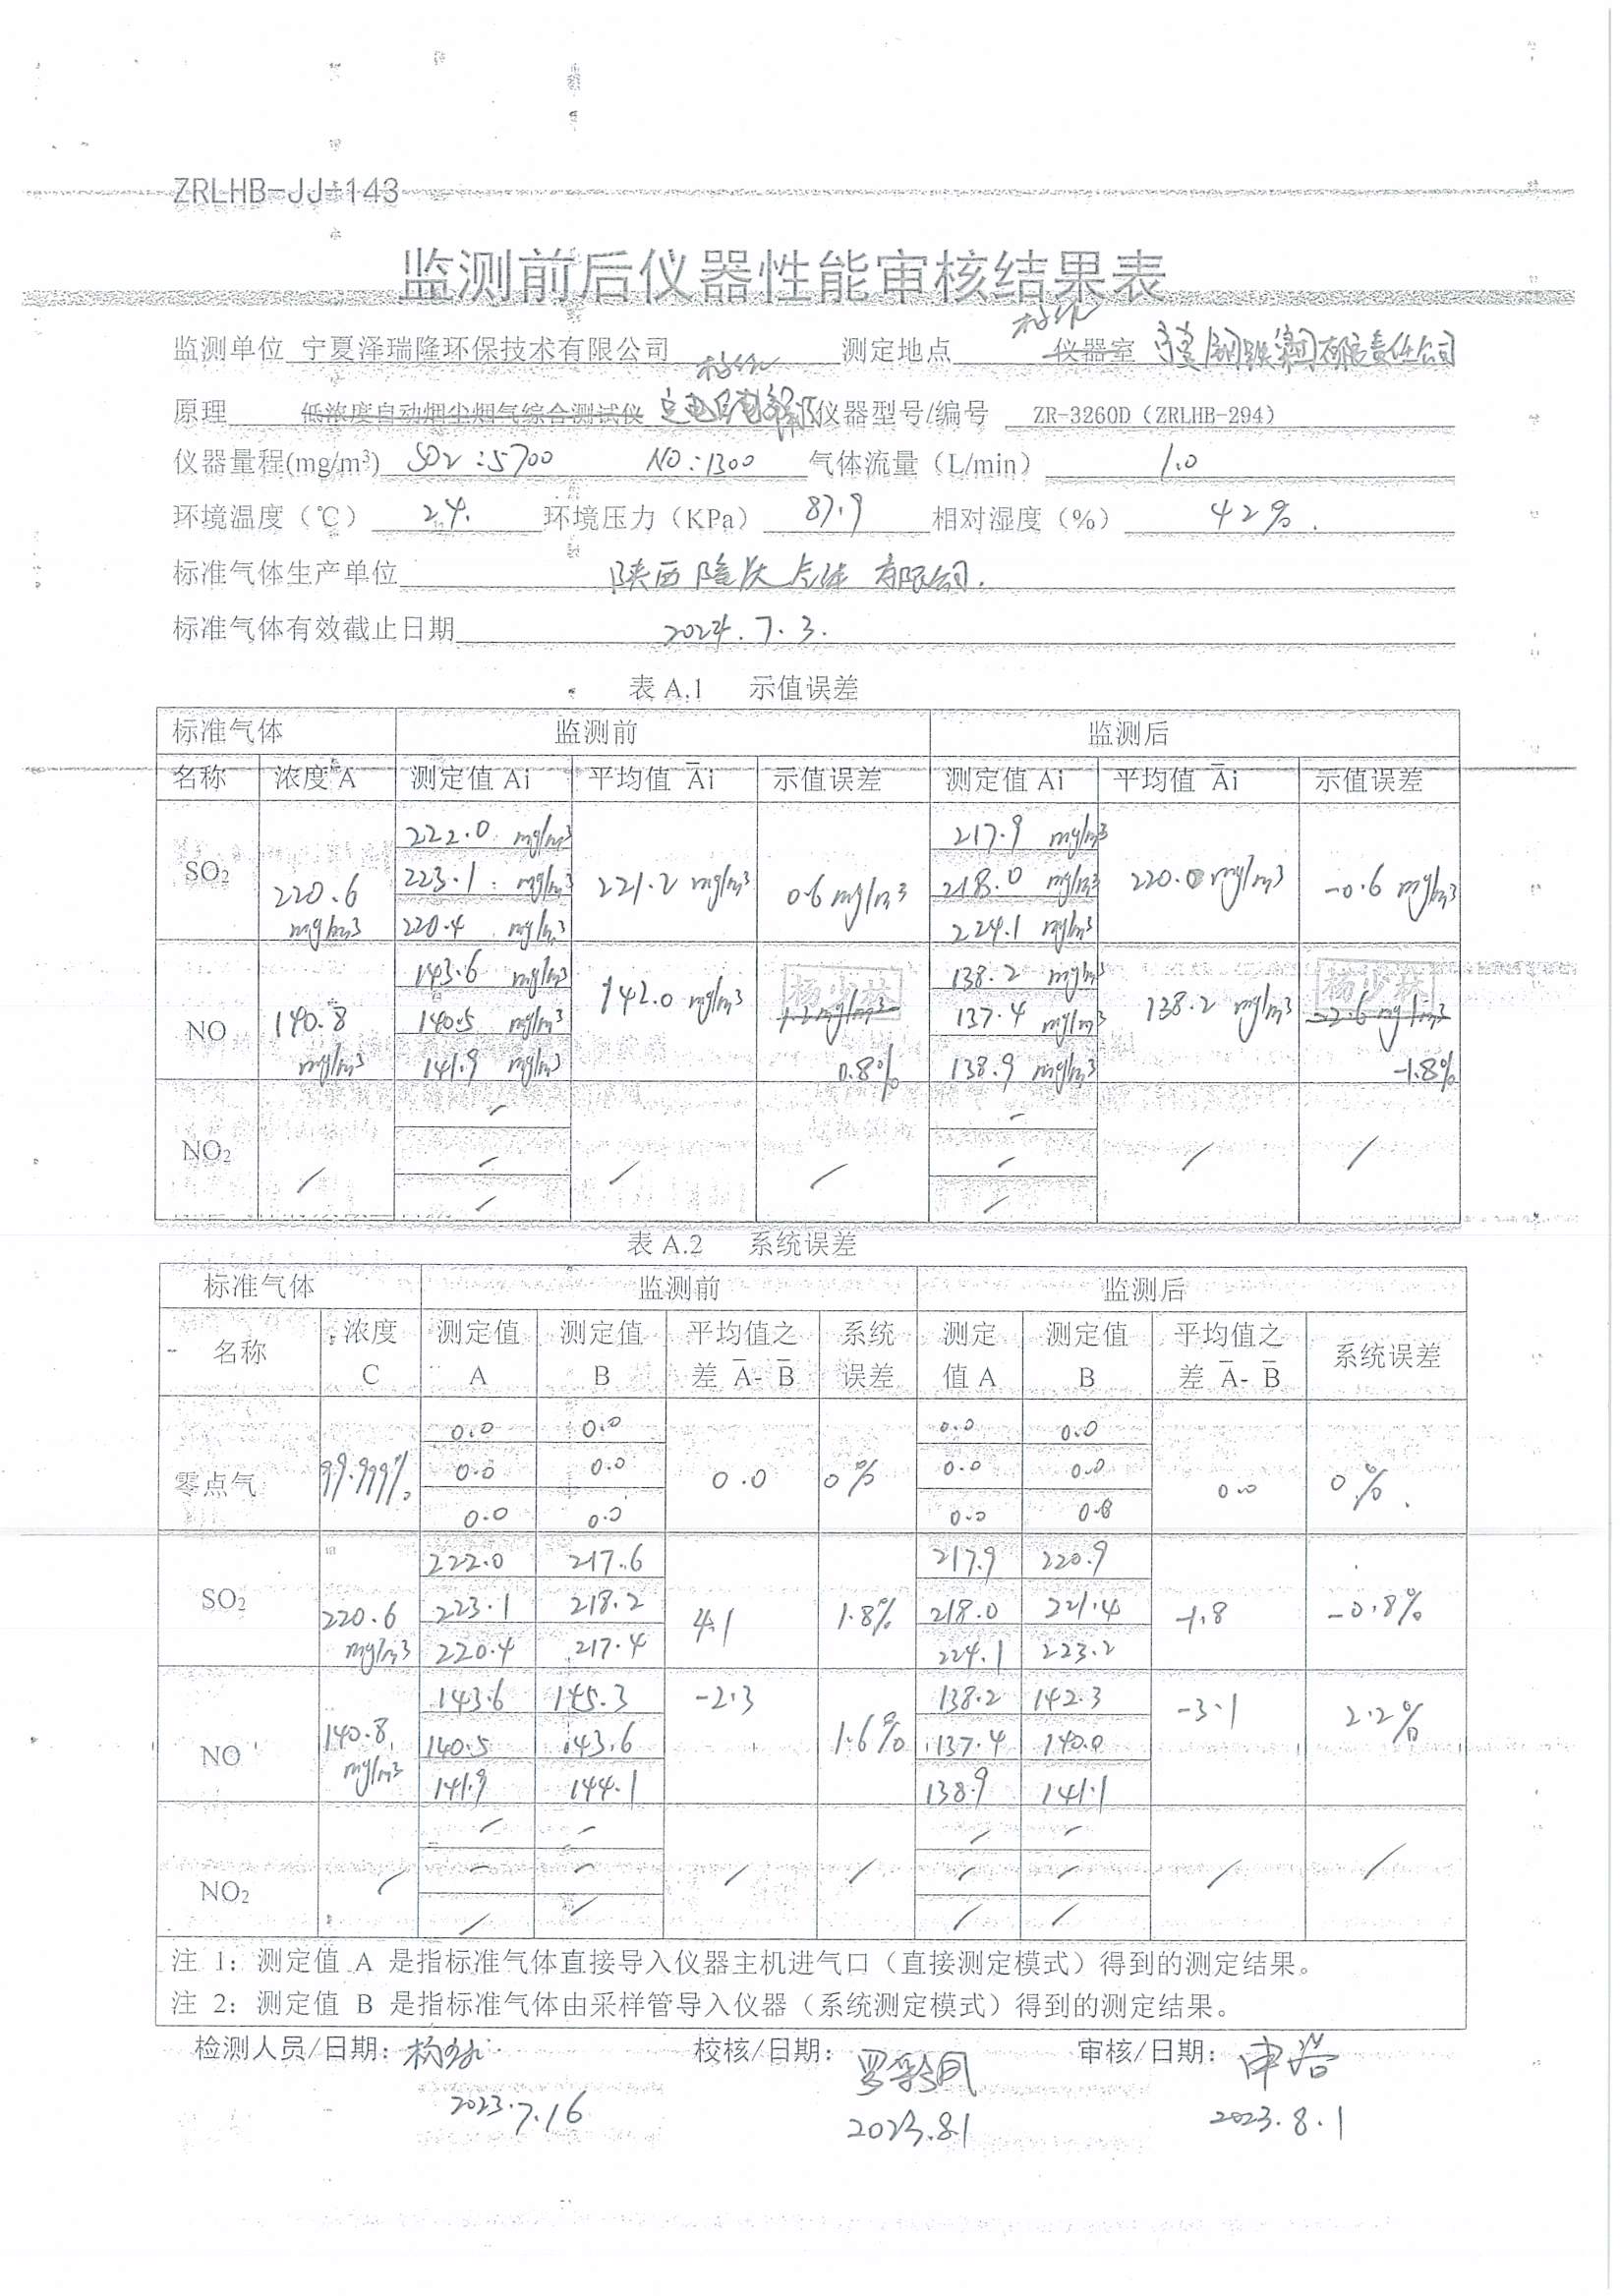 ZRLHB-JJ-143
监测前后仪器性能审核结果表
监测单位 宁夏泽瑞隆环保技术有限公司 测定地点 仪器室 宁夏钢铁集团有限责任公司
原理 低浓度自动烟尘烟气综合测试仪 定电位电解法 仪器型号/编号 ZR-3260D（ZRLHB-294）
仪器量程(mg/m³) SO₂:5700 NO:1300 气体流量（L/min） 1.0
环境温度（℃） 24. 环境压力（KPa） 87.9 相对湿度（%） 42%.
标准气体生产单位 陕西隆 气体有限公司.
标准气体有效截止日期 2024.7.3.
表 A.1 示值误差
标准气体 监测前 监测后
名称 浓度 A 测定值 Ai 平均值 A̅i 示值误差 测定值 Ai 平均值 A̅i 示值误差
SO₂ 220.6 mg/m³ 222.0 mg/m³ 221.2 mg/m³ 0.6 mg/m³ 217.9 mg/m³ 220.0 mg/m³ -0.6 mg/m³
223.1 mg/m³ 218.0 mg/m³
220.4 mg/m³ 224.1 mg/m³
NO 140.8 mg/m³ 143.6 mg/m³ 142.0 mg/m³ 杨少林 1.2 mg/m³ 0.8% 138.2 mg/m³ 138.2 mg/m³ 杨少林 -2.6 mg/m³ -1.8%
140.5 mg/m³ 137.4 mg/m³
141.9 mg/m³ 138.9 mg/m³
NO₂ / / / / / / /
/ /
/ /
表 A.2 系统误差
标准气体 监测前 监测后
名称 浓度 C 测定值 A 测定值 B 平均值之差 A̅- B̅ 系统误差 测定值 A 测定值 B 平均值之差 A̅- B̅ 系统误差
零点气 99.999% 0.0 0.0 0.0 0% 0.0 0.0 0.0 0%.
0.0 0.0 0.0 0.0
0.0 0.0 0.0 0.0
SO₂ 220.6 mg/m³ 222.0 217.6 4.1 1.8% 217.9 220.9 -1.8 -0.8%
223.1 218.2 218.0 221.4
220.4 217.4 224.1 223.2
NO 140.8 mg/m³ 143.6 145.3 -2.3 1.6% 138.2 142.3 -3.1 2.2%
140.5 143.6 137.4 140.0
141.9 144.1 138.9 141.1
NO₂ / / / / / / / / /
/ / / /
/ / / /
注 1: 测定值 A 是指标准气体直接导入仪器主机进气口（直接测定模式）得到的测定结果。
注 2: 测定值 B 是指标准气体由采样管导入仪器（系统测定模式）得到的测定结果。
检测人员/日期: 校核/日期: 审核/日期:
2023.7.16 2023.8.1 2023.8.1